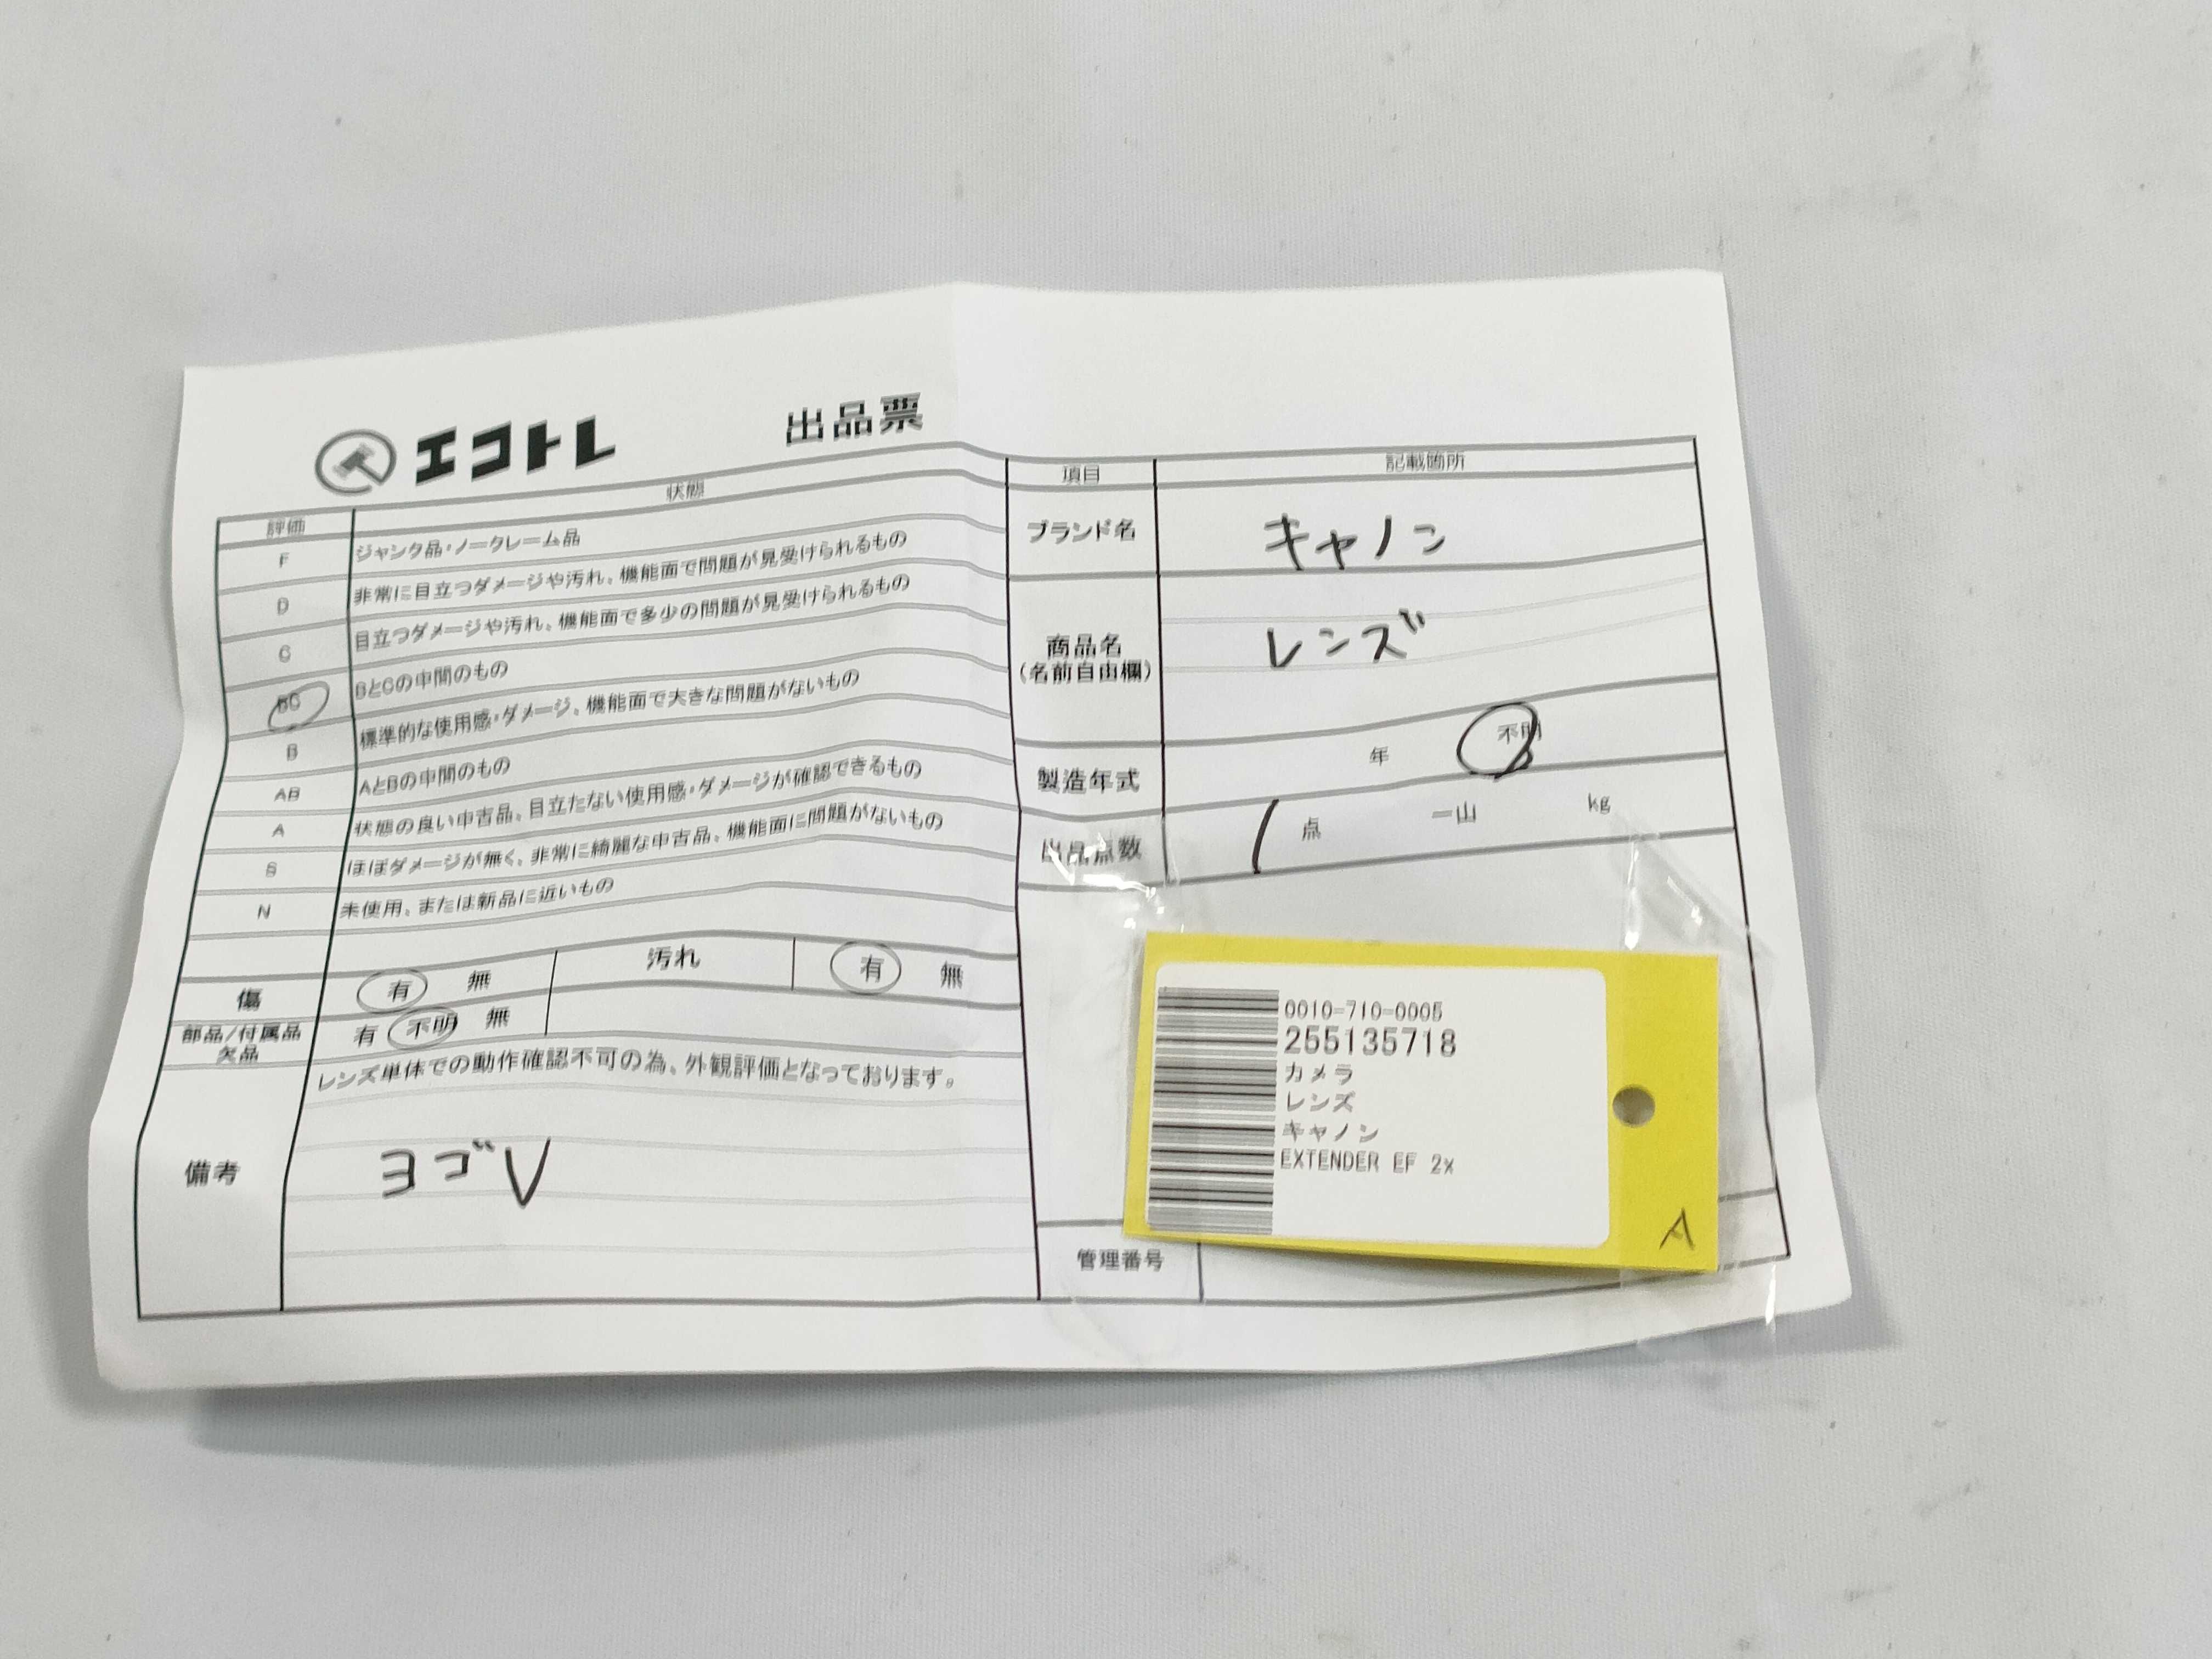 エコトレ 出品票
評価 状態
F ジャンク品・ノークレーム品
D 非常に目立つダメージや汚れ、機能面で問題が見受けられるもの
C 目立つダメージや汚れ、機能面で多少の問題が見受けられるもの
BC BとCの中間のもの
B 標準的な使用感・ダメージ、機能面で大きな問題がないもの
AB AとBの中間のもの
A 状態の良い中古品、目立たない使用感・ダメージが確認できるもの
S ほぼダメージが無く、非常に綺麗な中古品、機能面に問題がないもの
N 未使用、または新品に近いもの
傷 有 無 汚れ 有 無
部品/付属品 欠品 有 不明 無
備考 レンズ単体での動作確認不可の為、外観評価となっております。
ヨゴレ
項目 記載箇所
ブランド名 キャノン
商品名 レンズ
(名前自由欄)
製造年式 年 不明
出品点数 1 点 一山 kg
0010-710-0005
255135718
カメラ
レンズ
キャノン
EXTENDER EF 2x
A
管理番号